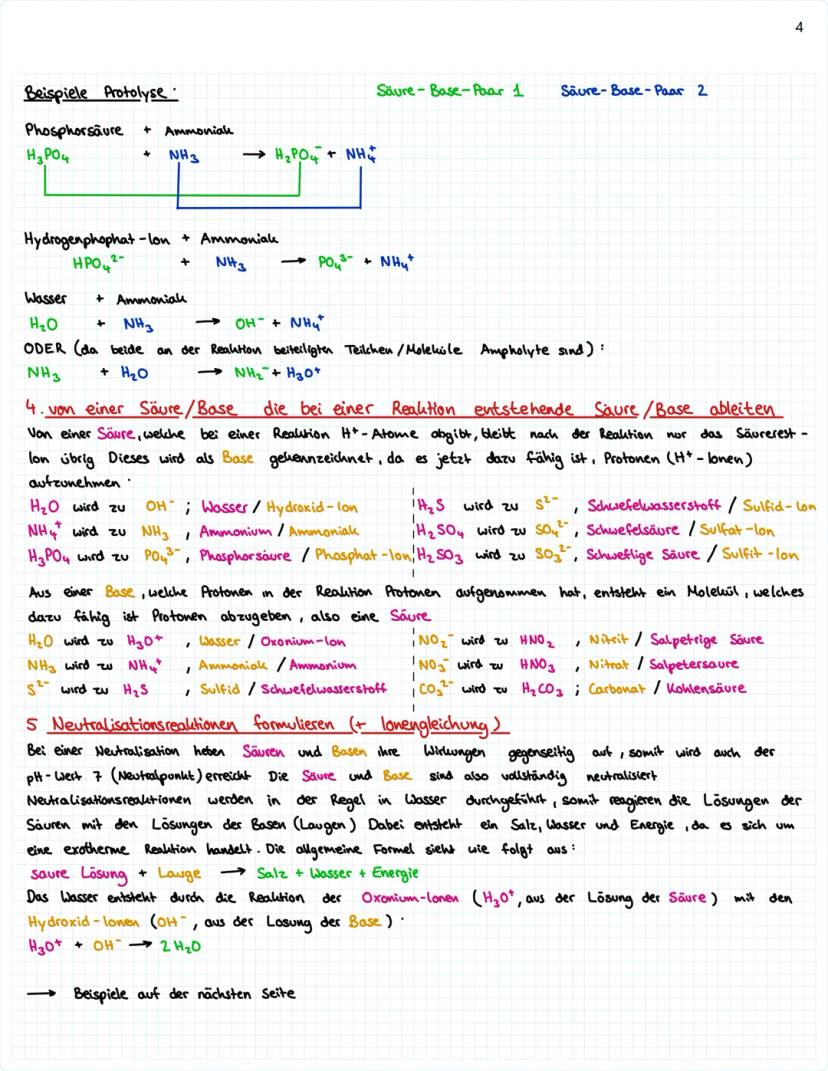 4
Beispiele Protolyse: Säure-Base-Paar 1 Säure-Base-Paar 2
Phosphorsäure + Ammoniak
H₃PO₄ + NH₃ → H₂PO₄⁻ + NH₄⁺
Hydrogenphophat-Ion + Ammoniak
HPO₄²⁻ + NH₃ → PO₄³⁻ + NH₄⁺
Wasser + Ammoniak
H₂O + NH₃ → OH⁻ + NH₄⁺
ODER (da beide an der Reaktion beiteiligten Teilchen/Moleküle Ampholyte sind):
NH₃ + H₂O → NH₂⁻ + H₃O⁺
4. von einer Säure/Base die bei einer Reaktion entstehende Säure/Base ableiten
Von einer Säure, welche bei einer Reaktion H⁺-Atome abgibt, bleibt nach der Reaktion nur das Säurerest-
Ion übrig Dieses wird als Base gekennzeichnet, da es jetzt dazu fähig ist, Protonen (H⁺-Ionen)
aufzunehmen.
H₂O wird zu OH⁻ ; Wasser / Hydroxid-Ion H₂S wird zu S²⁻ , Schwefelwasserstoff / Sulfid-Ion
NH₄⁺ wird zu NH₃ , Ammonium / Ammoniak H₂SO₄ wird zu SO₄²⁻ , Schwefelsäure / Sulfat-Ion
H₃PO₄ wird zu PO₄³⁻ , Phosphorsäure / Phosphat-Ion H₂SO₃ wird zu SO₃²⁻ , Schweflige Säure / Sulfit-Ion
Aus einer Base, welche Protonen in der Reaktion Protonen aufgenommen hat, entsteht ein Molekül, welches
dazu fähig ist Protonen abzugeben, also eine Säure
H₂O wird zu H₃O⁺ , Wasser / Oxonium-Ion NO₂⁻ wird zu HNO₂ , Nitrit / Salpetrige Säure
NH₃ wird zu NH₄⁺ , Ammoniak / Ammonium NO₃⁻ wird zu HNO₃ , Nitrat / Salpetersäure
S²⁻ wird zu H₂S , Sulfid / Schwefelwasserstoff CO₃²⁻ wird zu H₂CO₃ ; Carbonat / Kohlensäure
5 Neutralisationsreaktionen formulieren (+ Ionengleichung)
Bei einer Neutralisation heben Säuren und Basen ihre Wirkungen gegenseitig auf, somit wird auch der
pH-Wert 7 (Neutralpunkt) erreicht Die Säure und Base sind also vollständig neutralisiert
Neutralisationsreaktionen werden in der Regel in Wasser durchgeführt, somit reagieren die Lösungen der
Säuren mit den Lösungen der Basen (Laugen) Dabei entsteht ein Salz, Wasser und Energie, da es sich um
eine exotherme Reaktion handelt. Die allgemeine Formel sieht wie folgt aus:
saure Lösung + Lauge → Salz + Wasser + Energie
Das Wasser entsteht durch die Reaktion der Oxonium-Ionen (H₃O⁺, aus der Lösung der Säure) mit den
Hydroxid-Ionen (OH⁻, aus der Lösung der Base).
H₃O⁺ + OH⁻ → 2 H₂O
→ Beispiele auf der nächsten Seite